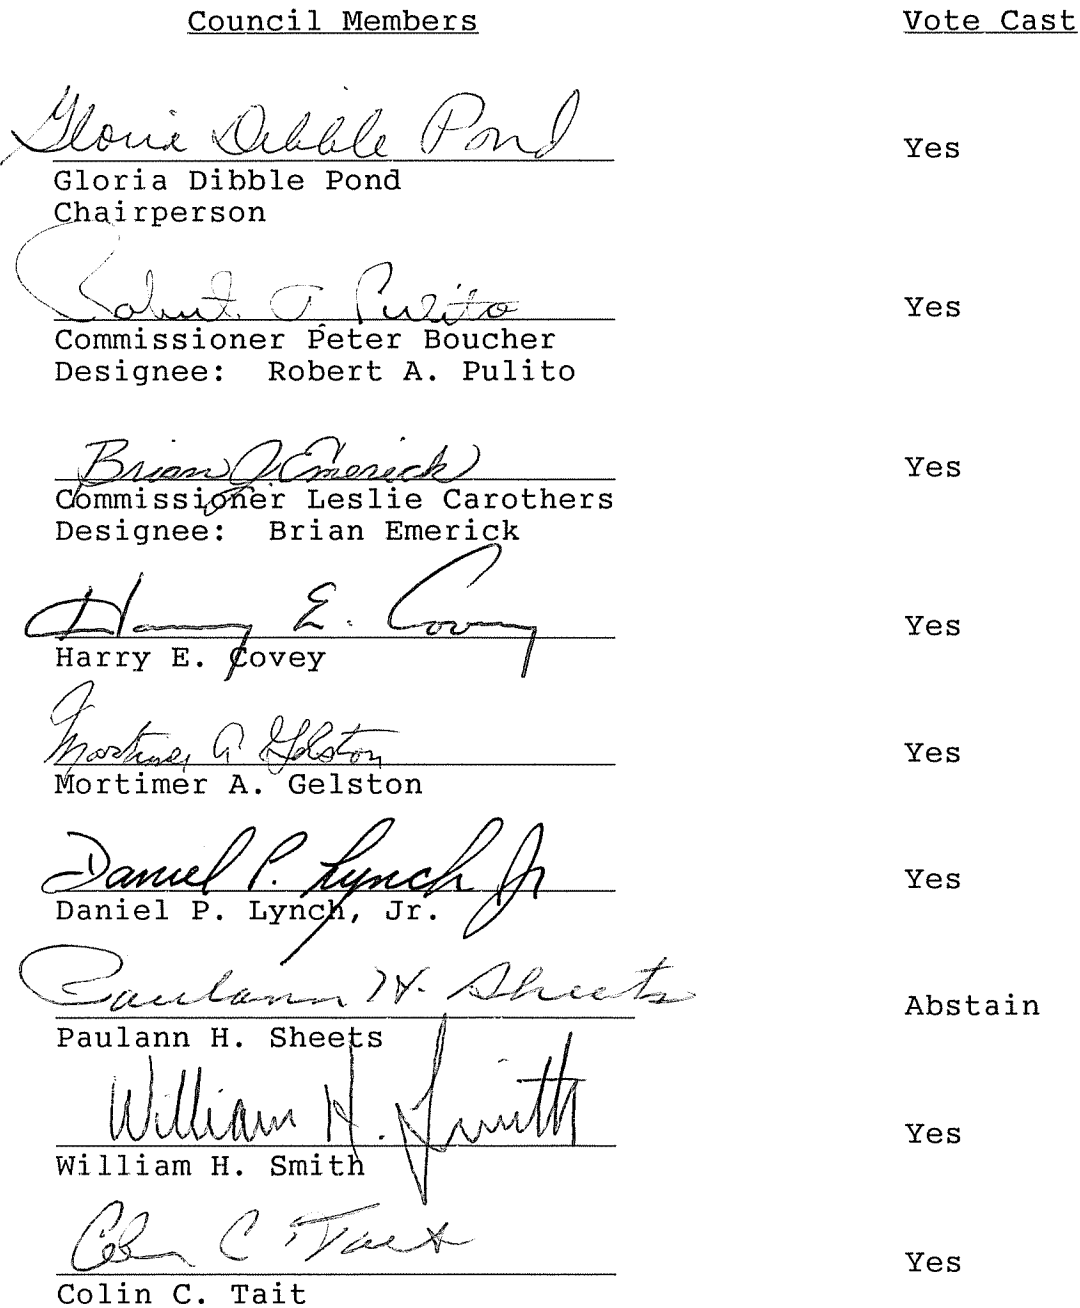 Council Members Vote Cast
Gloria Dibble Pond Yes
Gloria Dibble Pond
Chairperson
Robert A Pulito Yes
Commissioner Peter Boucher
Designee: Robert A. Pulito
Brian J Emerick Yes
Commissioner Leslie Carothers
Designee: Brian Emerick
Harry E. Covey Yes
Harry E. Covey
Mortimer A Gelston Yes
Mortimer A. Gelston
Daniel P. Lynch Jr Yes
Daniel P. Lynch, Jr.
Paulann H. Sheets Abstain
Paulann H. Sheets
William H. Smith Yes
William H. Smith
Colin C Tait Yes
Colin C. Tait